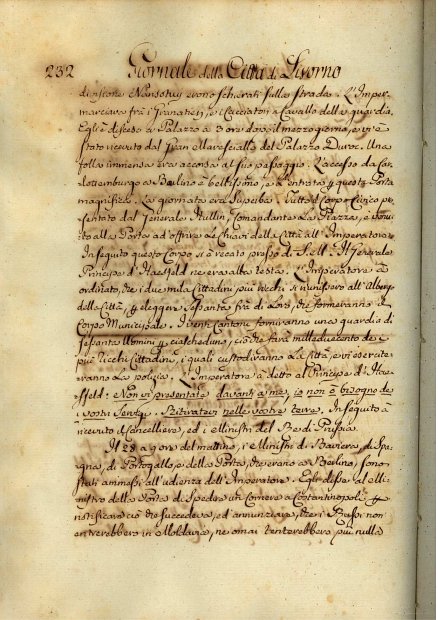 232 Giornale della Città di Livorno
divisione Nansouty erono schierati sulla strada. L'Imper.
marciava frà i Granatieri, e i Cacciatori a Cavallo della guardia,
Egli è disceso a Palazzo a 3 ore dopo il mezzogiorno, e vi è
stato ricevuto dal Gran Maresciallo del Palazzo Duroc. Una
folla immensa era accorsa al suo passaggio. L'accesso da Car,
lottemburgo a Berlino è bellissimo, e l'entrata per questa Porta
magnifica. La giornata era superba. Tutto il Corpo Civico pre
sentato dal Generale Hullin, Comandante la Piazza, è venu
to alla Porta ad offrire le Chiavi della Città all'Imperatore.
In seguito questo Corpo si è recato presso di S. M. Il Generale
Principe d'Hatsfeld ne era alla testa. L'Imperatore à
ordinato, che i due mila Cittadini più ricchi si riunissero all'
della Città, per eleggere sessanta frà di loro, che formeranno il
Corpo Municipale. I venti Cantoni forniranno una guardia di
sessanta Uomini per ciascheduno, ciò che farà milleduecento de i
più Ricchi Cittadini, i quali custodiranno la Città, e vi esercite
ranno la polizia. L'Imperatore à detto al Principe di Hat
sfeld: Non vi presentate davanti a me, io non ò bisogno de
i vostri Servigj. Ritiratevi nelle vostre terre. In seguito à
ricevuto il Cancelliere, ed i Ministri del Re di Prussia.
Il 28 a 9 ore del mattino, i Ministri di Baviera, di Spa
gna, di Portogallo, e della Porta, che erano a Berlino, sono
stati ammessi all'udienza dell'Imperatore. Egli disse al Mi
nistro della Porta di spedire un Corriere a Costantinopoli per
notificare ciò che succedeva, ed annunziare, che i Russi non
entrerebbero in Moldavia, ne omai tenterebbero più nulla